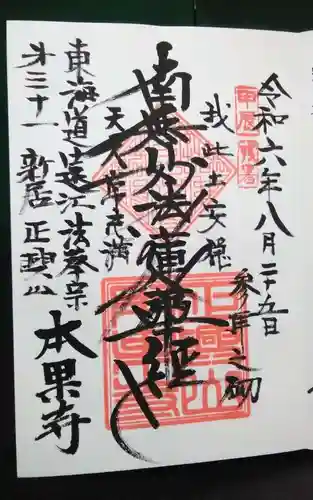 令和六年八月二十五日
参拝之砌
我此土安穏
南無妙法蓮華経
天人常充満
東海道遠江法華宗
第三十一 新居 正興山
本果寺